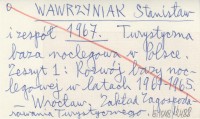 WAWRZYNIAK Stanisław
i zespół 1967. Turystyczna
baza noclegowa w Polsce.
Zeszyt 1: Rozwój bazy noc-
legowej w latach 1961-1965.
— Wrocław. Zakład Zagospoda-
rowania Turystycznego.